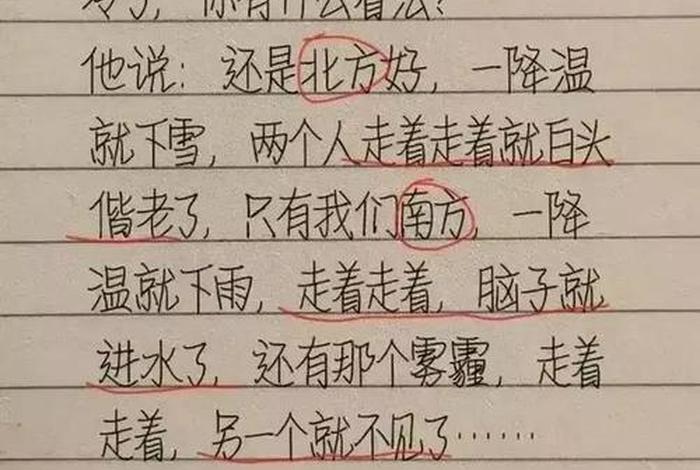 冷了，你有什么看法？
他说：还是北方好，一降温
就下雪，两个人走着走着就白头
偕老了，只有我们南方，一降
温就下雨，走着走着，脑子就
进水了，还有那个雾霾，走着
走着，另一个就不见了……